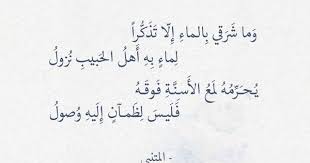 وَما شَرَقي بِالماءِ إِلّا تَذَكُّراً
لِماءٍ بِهِ أَهلُ الحَبيبِ نُزولُ
يُحَرِّمُهُ لَمعُ الأَسِنَّةِ فَوقَهُ
فَلَيسَ لِظَمآنٍ إِلَيهِ وُصولُ
- المتنبي